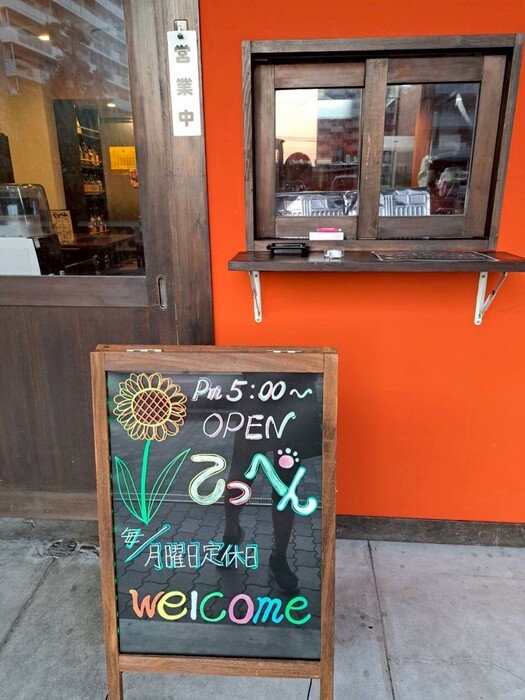 営業中
Pm 5:00～
OPEN
てっぺん
毎/月曜日定休日
welcome